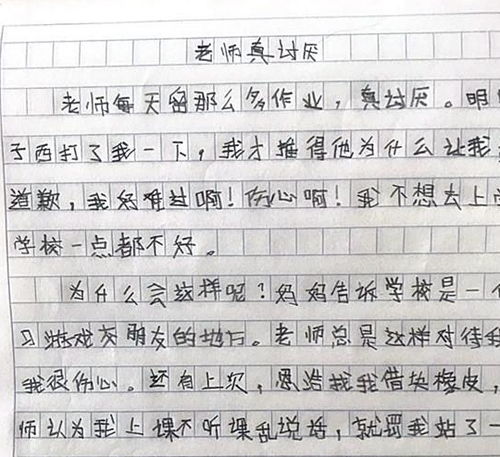 老师真讨厌
老师每天留那么多作业，真讨厌。明
子西打了我一下，我才推得他为什么让我
道歉，我好难过啊！伤心啊！我不想去上
学校一点都不好。
为什么会这样呢？妈妈告诉学校是一个
习游戏交朋友的地方。老师总是这样对待我
我很伤心。还有上次，思浩找我借块橡皮，
师认为我上课不听课乱说话，就罚我站了一